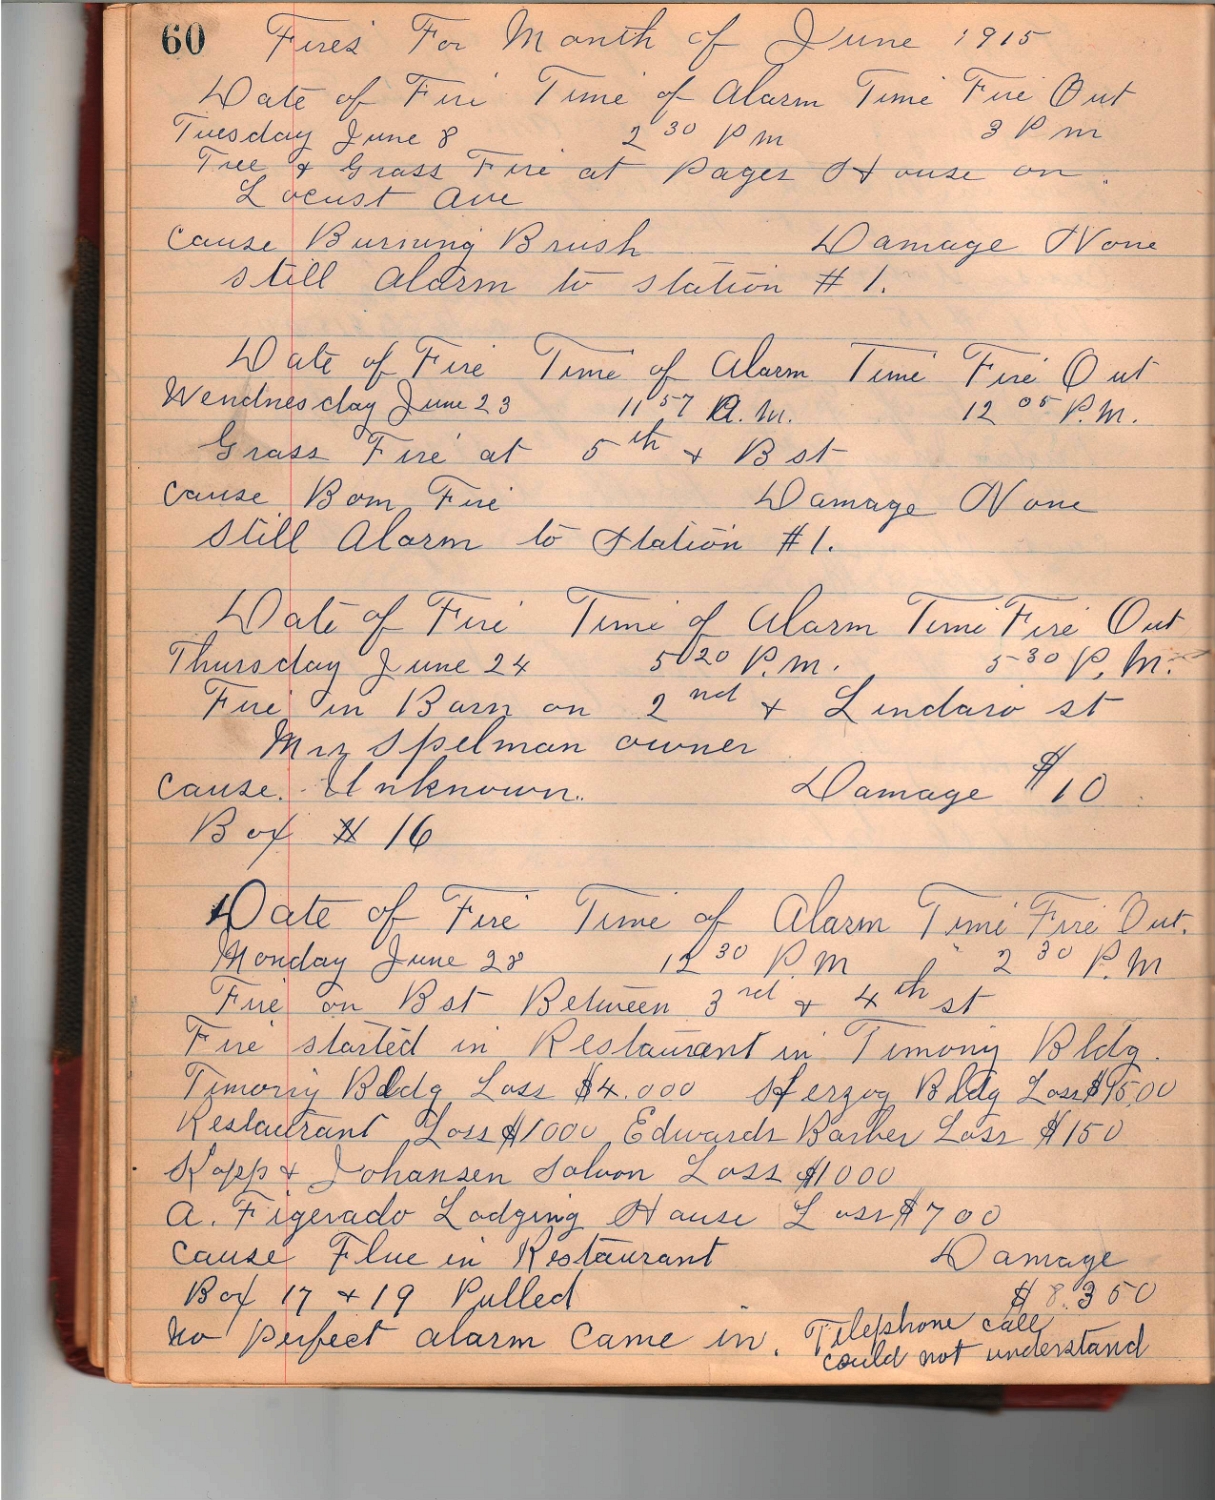 60 Fires For Month of June 1915
Date of Fire Time of Alarm Time Fire Out
Tuesday June 8 2 30 P m 3 P m
Tree & Grass Fire at Pages House on
Locust Ave
Cause Burning Brush Damage None
still alarm to station # 1.
Date of Fire Time of Alarm Time Fire Out
Wendnesday June 23 11 57 A.M. 12 05 P.M.
Grass Fire at 5th & B st
Cause Bom Fire Damage None
Still Alarm to Station #1.
Date of Fire Time of Alarm Time Fire Out
Thursday June 24 5 20 P.M. 5 30 P.M.
Fire in Barn on 2nd & Lindaro st
Mrs Spelman owner
Cause. Unknown. Damage $10
Box # 16
Date of Fire Time of Alarm Time Fire Out.
Monday June 28 12 30 P.M 2 30 P.M
Fire on B st Between 3rd & 4th st
Fire started in Restaurant in Timony Bldg.
Timony Bldg Loss $4.000 Herzog Bldg Loss $1500
Restaurant Loss $1000 Edwards Barber Loss $150
Kopp & Johansen Saloon Loss $1000
A. Figerado Lodging House Loss $700
Cause Flue in Restaurant Damage
Box 17 & 19 Pulled $8.350
No perfect alarm came in. Telephone call
could not understand